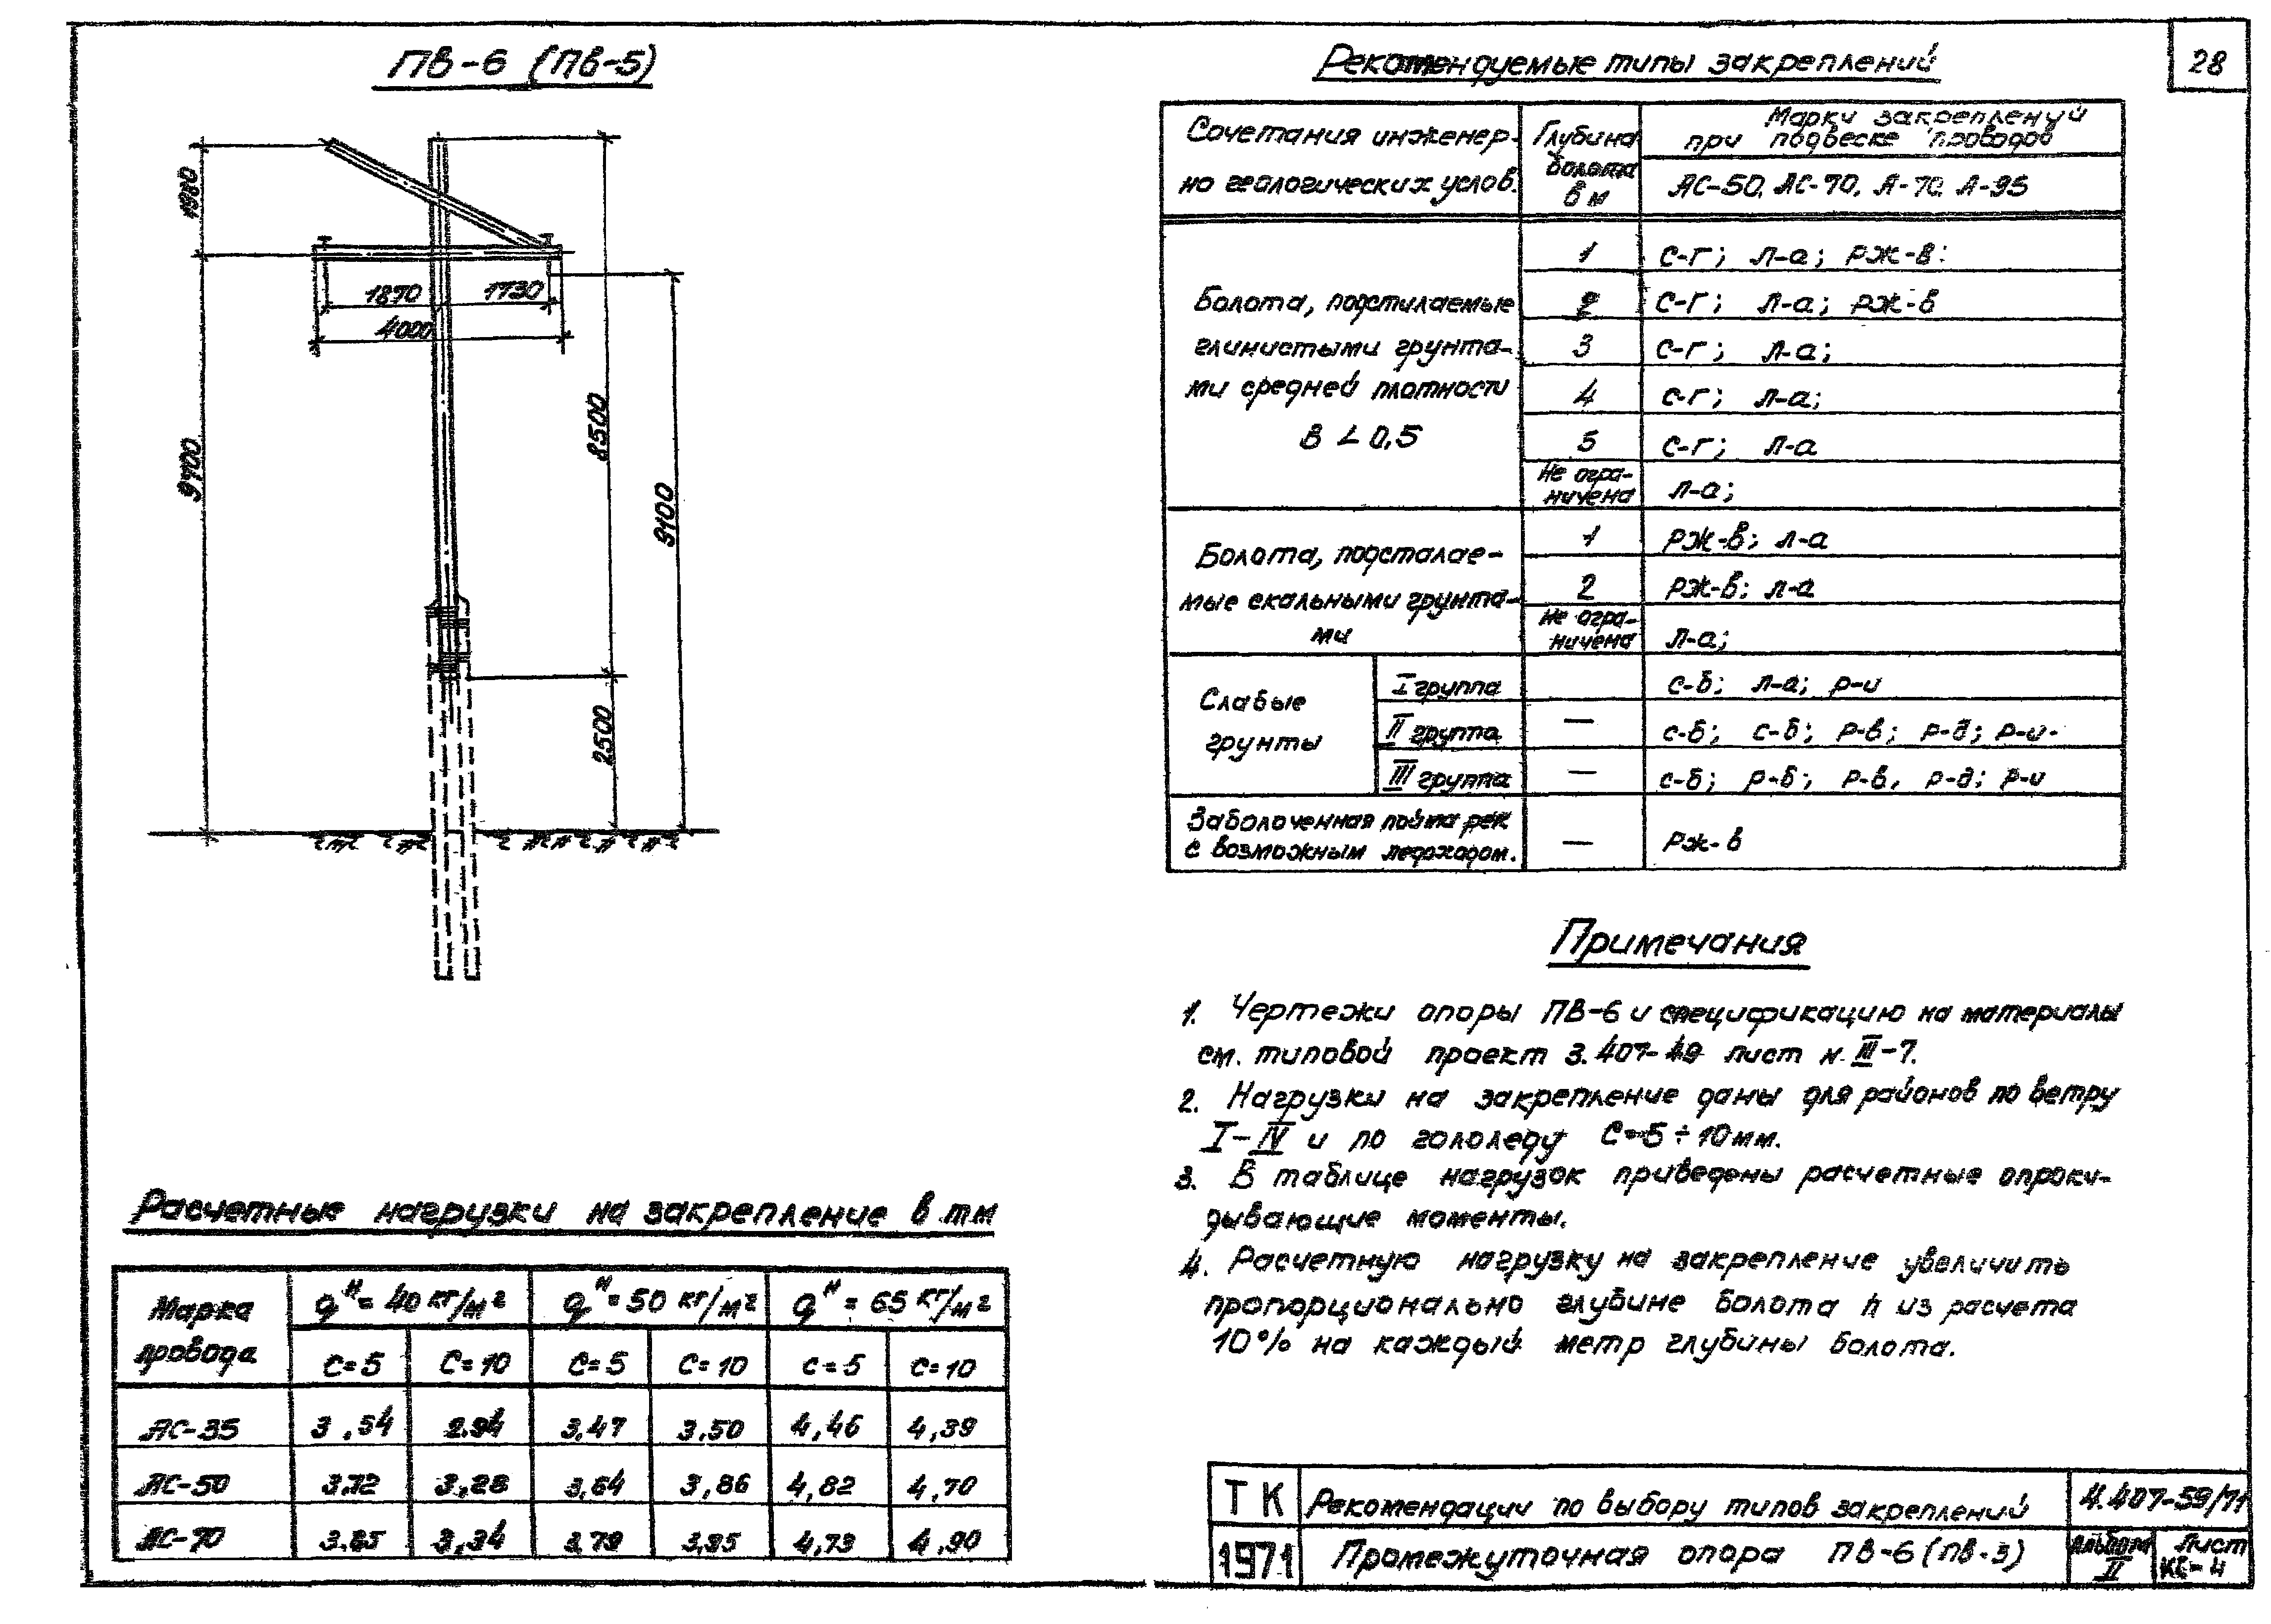 28
ПВ-6 (ПВ-5)
1980
1870 1730
4000
8500
9700
9100
2500
Расчетные нагрузки на закрепление в тм
Марка провода
qᴴ = 40 кг/м² qᴴ = 50 кг/м² qᴴ = 65 кг/м²
С=5 С=10 С=5 С=10 С=5 С=10
АС-35 3,54 2.94 3,47 3,50 4,46 4,39
АС-50 3,72 3,28 3,64 3,86 4,82 4,70
АС-70 3.85 3,34 3,79 3,95 4,73 4,90
Рекомендуемые типы закреплений
Сочетания инженер-
но геологических услов.
Глубина
болота
в м
Марки закреплений
при подвеске проводов
АС-50, АС-70, А-70, А-95
Болота, подстилаемые
глинистыми грунта-
ми средней плотности
В < 0,5
1 с-г; л-а; рж-в:
2 с-г; л-а; рж-в
3 с-г; л-а;
4 с-г; л-а;
5 с-г; л-а
Не огра-
ничена л-а;
Болота, подсталае-
мые скальными грунта-
ми
1 рж-в; л-а
2 рж-в; л-а
Не огра-
ничена л-а;
Слабые
грунты
I группа с-б; л-а; р-и
II группа — с-б; с-б; р-в; р-д; р-и-
III группа — с-б; р-б; р-в, р-д; р-и
Заболоченная пойма рек
с возможным ледоходом. — Рж-в
Примечания
1. Чертежи опоры ПВ-6 и спецификацию на материалы
см. типовой проект 3.407-49 лист н. III-7.
2. Нагрузки на закрепление даны для районов по ветру
I-IV и по гололеду С=5÷10мм.
3. В таблице нагрузок приведены расчетные опроки-
дывающие моменты.
4. Расчетную нагрузку на закрепление увеличить
пропорционально глубине болота h из расчета
10% на каждый метр глубины болота.
ТК Рекомендации по выбору типов закреплений 4.407-59/71
1971 Промежуточная опора ПВ-6 (ПВ-5) Альбом II Лист КС-4